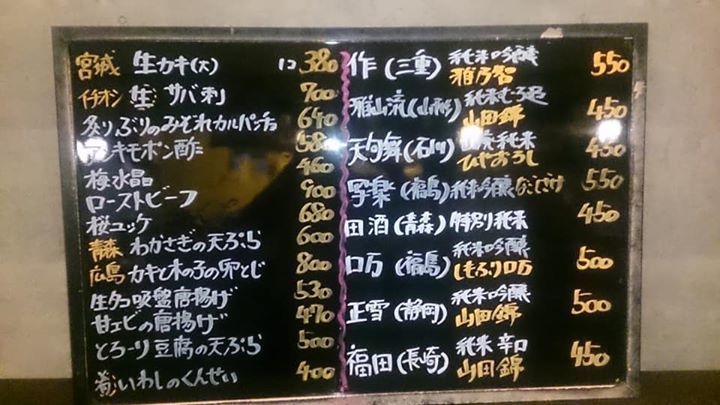 宮城 生カキ(大) 1コ 380
イチオシ 生サバ刺 700
炙りぶりのみぞれカルパッチョ 640
アンキモポン酢 580
梅水晶 460
ローストビーフ 900
桜ユッケ 680
青森 わかさぎの天ぷら 600
広島 カキと木の子の卵とじ 800
生タコ吸盤唐揚げ 530
甘エビの唐揚げ 470
とろーり豆腐の天ぷら 500
いわしのくんせい 400
作(三重) 純米吟醸 雅乃智 550
雅山流(山形) 純米 山田錦 450
天狗舞(石川) 山廃純米 ひやおろし 450
写楽(福島) 純米吟醸 なごしざけ 550
田酒(青森) 特別純米 450
ロ万(福島) 純米吟醸 しもふりロ万 500
正雪(静岡) 純米吟醸 山田錦 500
福田(長崎) 純米辛口 山田錦 450